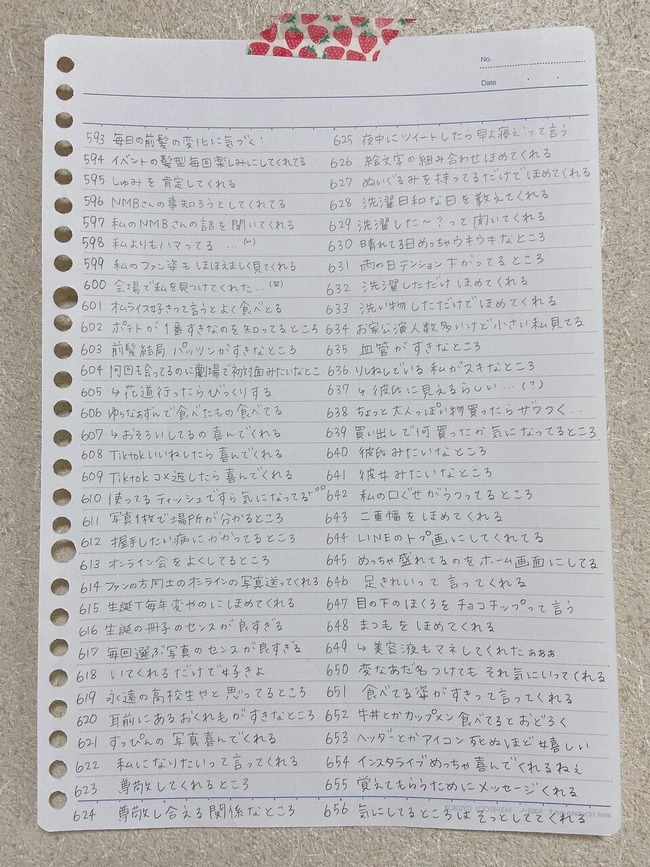 No.
Date
593 毎日の前髪の変化に気づく!
594 イベントの髪型毎回楽しみにしてくれてる
595 しゅみを肯定してくれる
596 NMBさんの事知ろうとしてくれてる
597 私のNMBさんの話を聞いてくれる
598 私よりもハマってる …(笑)
599 私のファン姿もほほえましく見てくれる
600 会場で私を見つけてくれた…(笑)
601 オムライス好きって言うとよく食べとる
602 ポテトが1番すきなのを知ってるところ
603 前髪結局パッツンがすきなところ
604 何回も会ってるのに劇場で初対面みたいなとこ
605 ↳花道行ったらびっくりする
606 ゆらなぁずんで食べたもの食べてる
607 ↳おそろいしてるの喜んでくれる
608 Tiktokいいねしたら喜んでくれる
609 Tiktokコメ返したら喜んでくれる
610 使ってるティッシュですら気になってるとこ
611 写真1枚で場所が分かるところ
612 握手したい病にかかってるところ
613 オンライン会をよくしてるところ
614 ファンの方同士のオンラインの写真送ってくれる
615 生誕T毎年変やのにほめてくれる
616 生誕の冊子のセンスが良すぎる
617 毎回選ぶ写真のセンスが良すぎる
618 いてくれるだけで好きよ
619 永遠の高校生やと思ってるところ
620 耳前にあるおくれもがすきなところ
621 すっぴんの写真喜んでくれる
622 私になりたいって言ってくれる
623 尊敬してくれるところ
624 尊敬し合える関係なところ
625 夜中にツイートしたら早よ寝ぇって言う
626 絵文字の組み合わせほめてくれる
627 ぬいぐるみを持ってるだけでほめてくれる
628 洗濯日和な日を教えてくれる
629 洗濯した〜?って聞いてくれる
630 晴れてる日めっちゃウキウキなところ
631 雨の日テンション下がってるところ
632 洗濯しただけほめてくれる
633 洗い物しただけでほめてくれる
634 お家公演人数多いけど小さい私見てる
635 血管がすきなところ
636 りねしでいる私がスキなところ
637 ↳彼氏に見えるらしい…(?)
638 ちょっと大人っぽい物買ったらザワつく…
639 買い出しで何買ったか気になってるところ
640 彼氏みたいなところ
641 彼女みたいなところ
642 私の口ぐせがうつってるところ
643 二重幅をほめてくれる
644 LINEのトプ画にしてくれてる
645 めっちゃ盛れてるのをホーム画面にしてる
646 足きれいって言ってくれる
647 目の下のほくろをチョコチップって言う
648 まつもをほめてくれる
649 ↳美容液もマネしてくれたぁぁぁ
650 変なあだ名つけてもそれ気にいってくれる
651 食べてる姿がすきって言ってくれる
652 牛丼とかカップメン食べてるとおどろく
653 ヘッダーとかアイコン死ぬほど嬉しい
654 インスタライブめっちゃ喜んでくれるねぇ
655 覚えてもらうためにメッセージくれる
656 気にしてるところはそっとしててくれる
KOKUYO LOOSE-LEAF